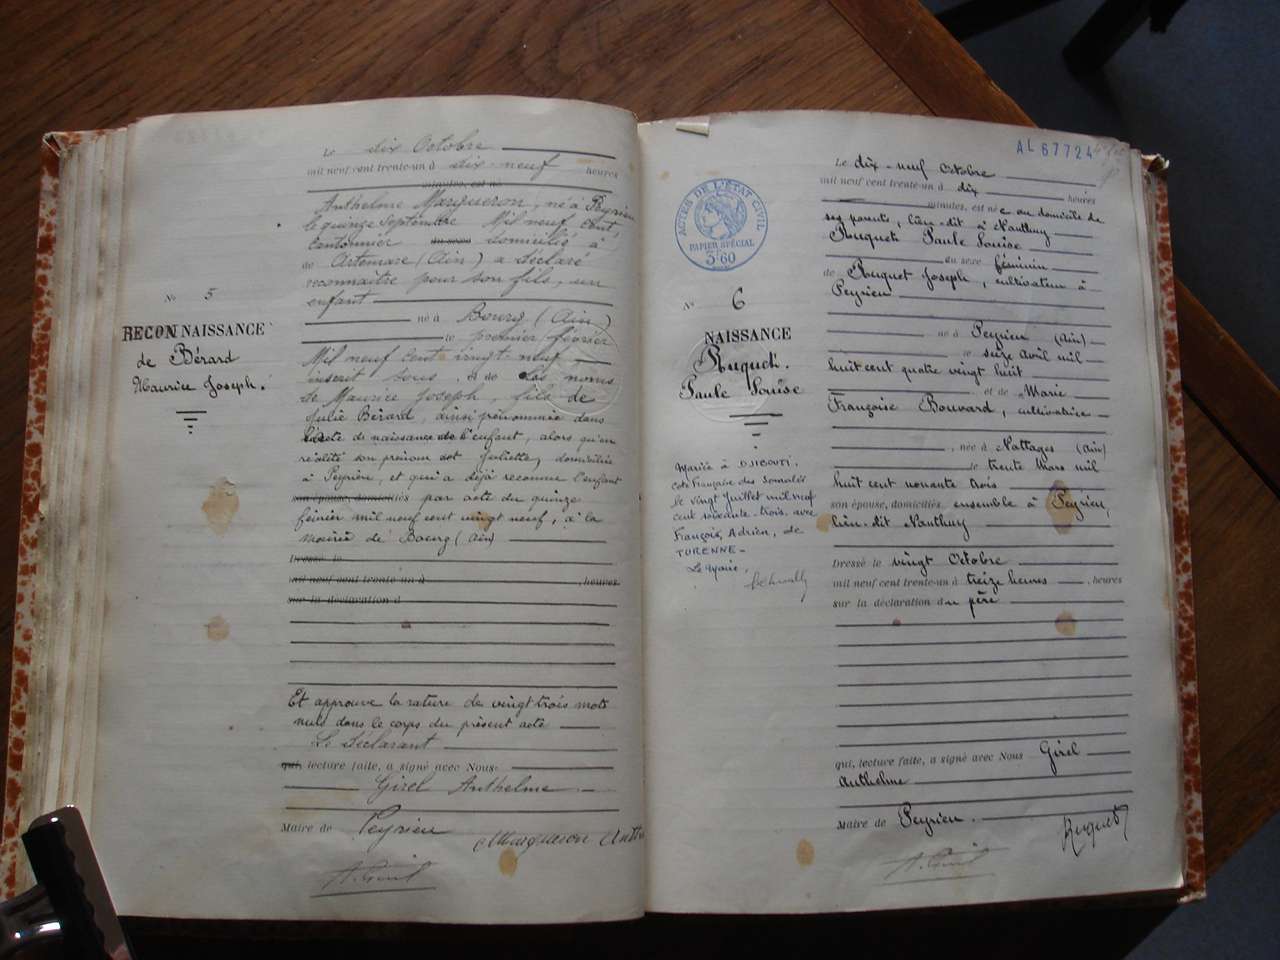 Le dix Octobre
mil neuf cent trente-un à dix-neuf heures
minutes, est né
Anthelme Margueron, né à Peyrieu
le quinze septembre Mil neuf cent
cantonnier du sexe domicilié à
de Artemare (Ain) a déclaré
reconnaître pour son fils, un
enfant
né à Bourg (Ain)
le premier février
Mil neuf cent vingt neuf
inscrit sous et de les noms
de Maurice Joseph, fils de
Julie Bérard, ainsi prénommée dans
l'acte de naissance de l'enfant, alors qu'en
réalité son prénom est Juliette, domiciliée
à Peyrieu, et qui a déjà reconnu l'enfant
son épouse, domiciliés par acte du quinze
février mil neuf cent vingt neuf, à la
mairie de Bourg (Ain)
Dressé le
mil neuf cent trente-un à heures
sur la déclaration d
Et approuvé la rature de vingt trois mots
nuls dans le corps du présent acte
Le Déclarant
qui, lecture faite, a signé avec Nous
Girel Anthelme
Maire de Peyrieu
Margueron Anth
A. Girel
N° 5
RECONNAISSANCE
de Bérard
Maurice Joseph.
AL 67724
ACTES DE L'ÉTAT CIVIL
PAPIER SPÉCIAL
3F60
N° 6
NAISSANCE
Ruquet
Paule Louise
Mariée à DJIBOUTI,
Côte Française des Somalis
le vingt juillet mil neuf
cent soixante-trois avec
François, Adrien, de
TURENNE-
Le Maire,
Le dix-neuf Octobre
mil neuf cent trente-un à dix heures
minutes, est née au domicile de
ses parents, lieu-dit à Nanthuy
Ruquet Paule Louise
du sexe féminin
de Ruquet Joseph, cultivateur à
Peyrieu
né à Peyrieu (Ain)
le seize avril mil
huit cent quatre vingt huit
et de Marie
Françoise Bouvard, cultivatrice
, née à Nattages (Ain)
le trente Mars mil
huit cent nonante trois
son épouse, domiciliés ensemble à Peyrieu,
lieu-dit Nanthuy
Dressé le vingt Octobre
mil neuf cent trente-un à treize heures, heures
sur la déclaration du père
qui, lecture faite, a signé avec Nous Girel
Anthelme
Maire de Peyrieu.
Ruquet
A. Girel